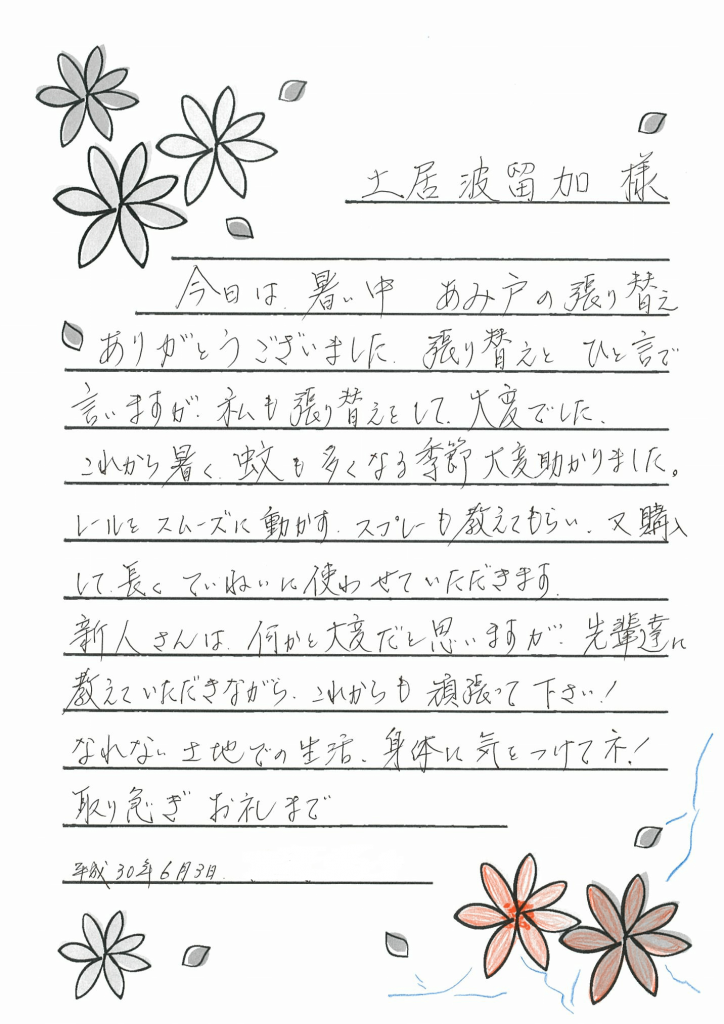 土居波留加 様
今日は、暑い中 あみ戸の張り替え
ありがとうございました。張り替えと ひと言で
言いますが、私も張り替えをして、大変でした、
これから暑く、蚊も多くなる季節 大変助かりました。
レールを スムーズに動かす、スプレーも教えてもらい、又購入
して、長く ていねいに使わせていただきます。
新人さんは、何かと大変だと思いますが、先輩達に
教えていただきながら、これからも 頑張って下さい!
なれない土地での生活、身体に気をつけてネ!
取り急ぎ お礼まで
平成30年6月3日.